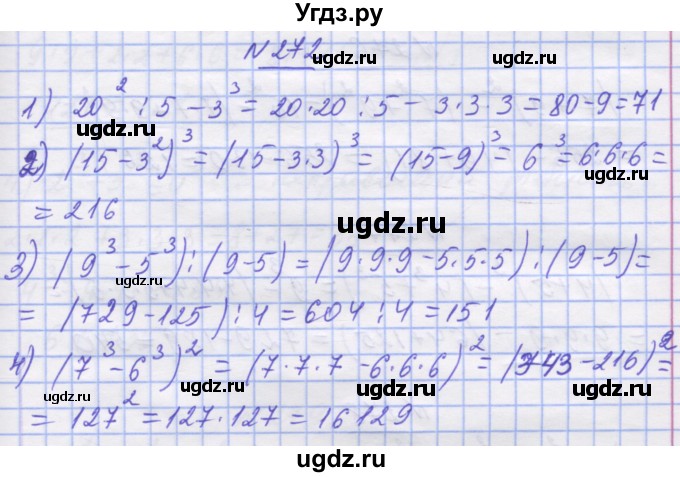 Угдз.ру
N 272
ugdz.ru ugdz.ru
1) 20² : 5 - 3³ = 20·20 : 5 - 3·3·3 = 80-9=71
ugdz.ru
2) (15-3²)³ = (15-3·3)³ = (15-9)³ = 6³ = 6·6·6 =
ugdz.ru
= 216
ugdz.ru
3) (9³-5³):(9-5) = (9·9·9-5·5·5):(9-5)=
ugdz.ru ugdz.ru
= (729-125):4=604:4=151
4) (7³-6³)² = (7·7·7-6·6·6)² = (343-216)² =
ugdz.ru ugdz.ru ugdz.ru
= 127² = 127·127 = 16129
ugdz.ru
ugdz.ru